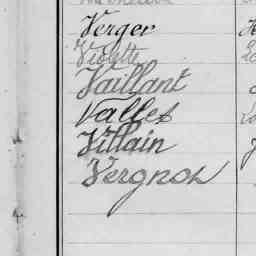 Verger
Violette
Vaillant
Vallet
Villain
Vergnol